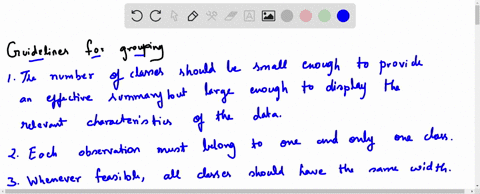 Guidelines for grouping
1. The number of classes should be small enough to provide
an effective summary but large enough to display the
relevant characteristics of the data.
2. Each observation must belong to one and only one class.
3. Whenever feasible, all classes should have the same width.